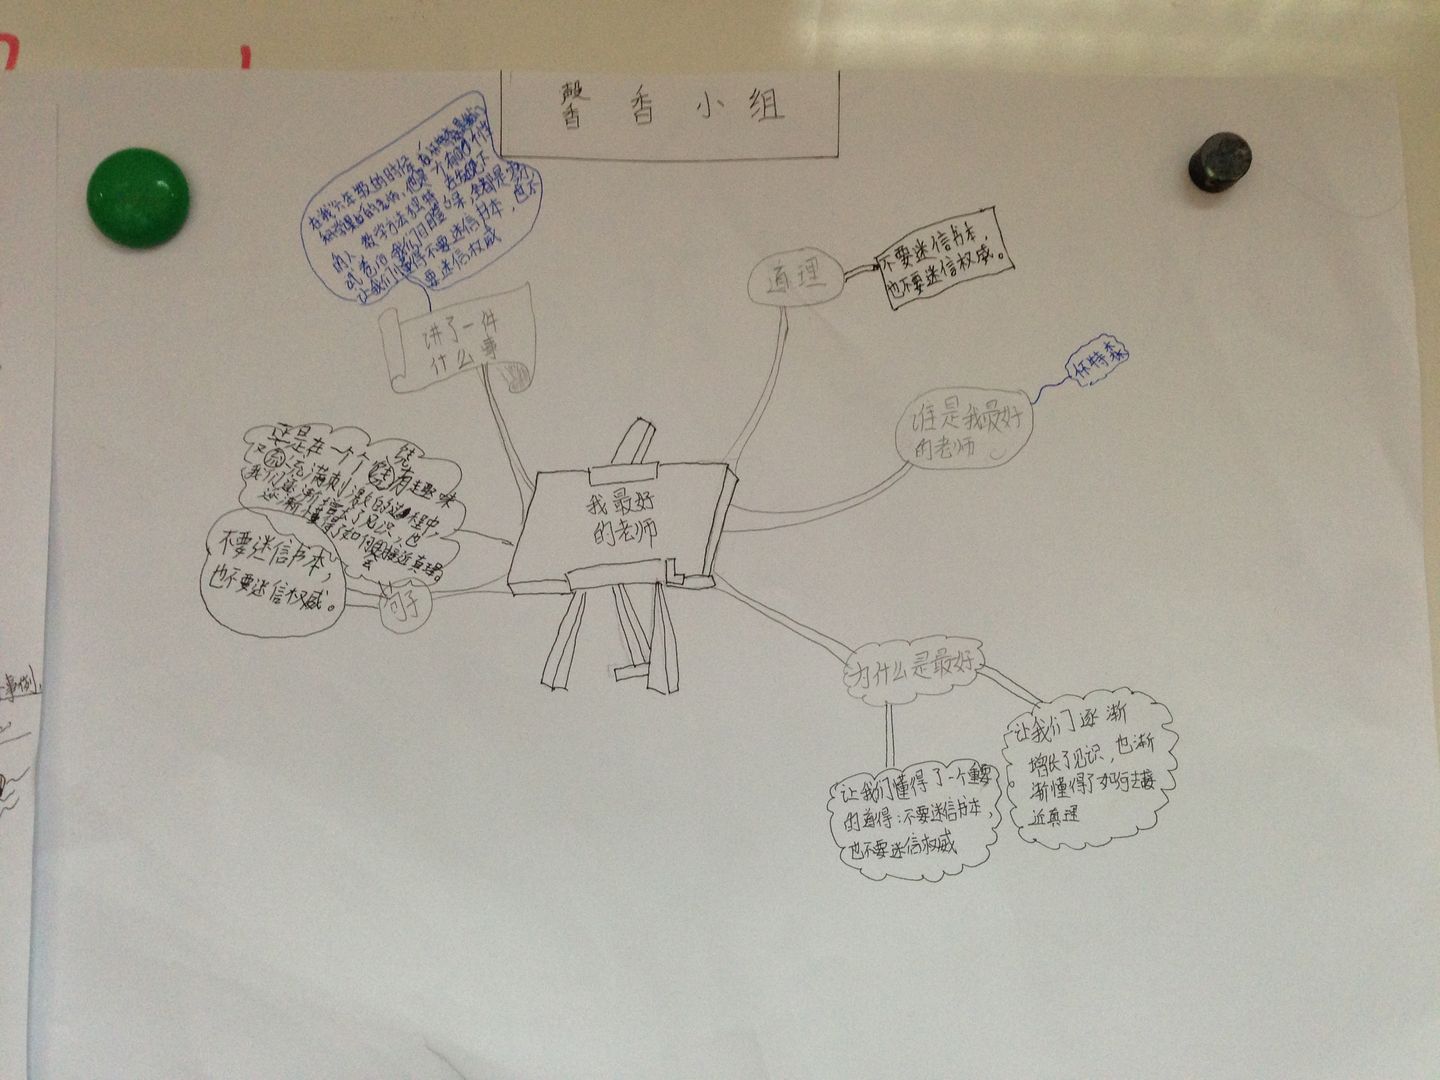 馨香小组
在我六年级的时候
的人，教学方法独特
让我们懂得不要迷信书本，也不
要迷信权威
讲了一件
什么事
道理
不要迷信书本，
也不要迷信权威。
谁是我最好
的老师
怀特森
我最好
的老师
正是在一个个饶有趣味
又充满刺激的过程中，
我们逐渐增长了见识，也
逐渐懂得了如何去接近真理。
句子
不要迷信书本，
也不要迷信权威。
为什么是最好
让我们懂得了一个重要
的道得：不要迷信书本，
也不要迷信权威
让我们逐渐
增长了见识，也渐
渐懂得了如何去接
近真理
事例